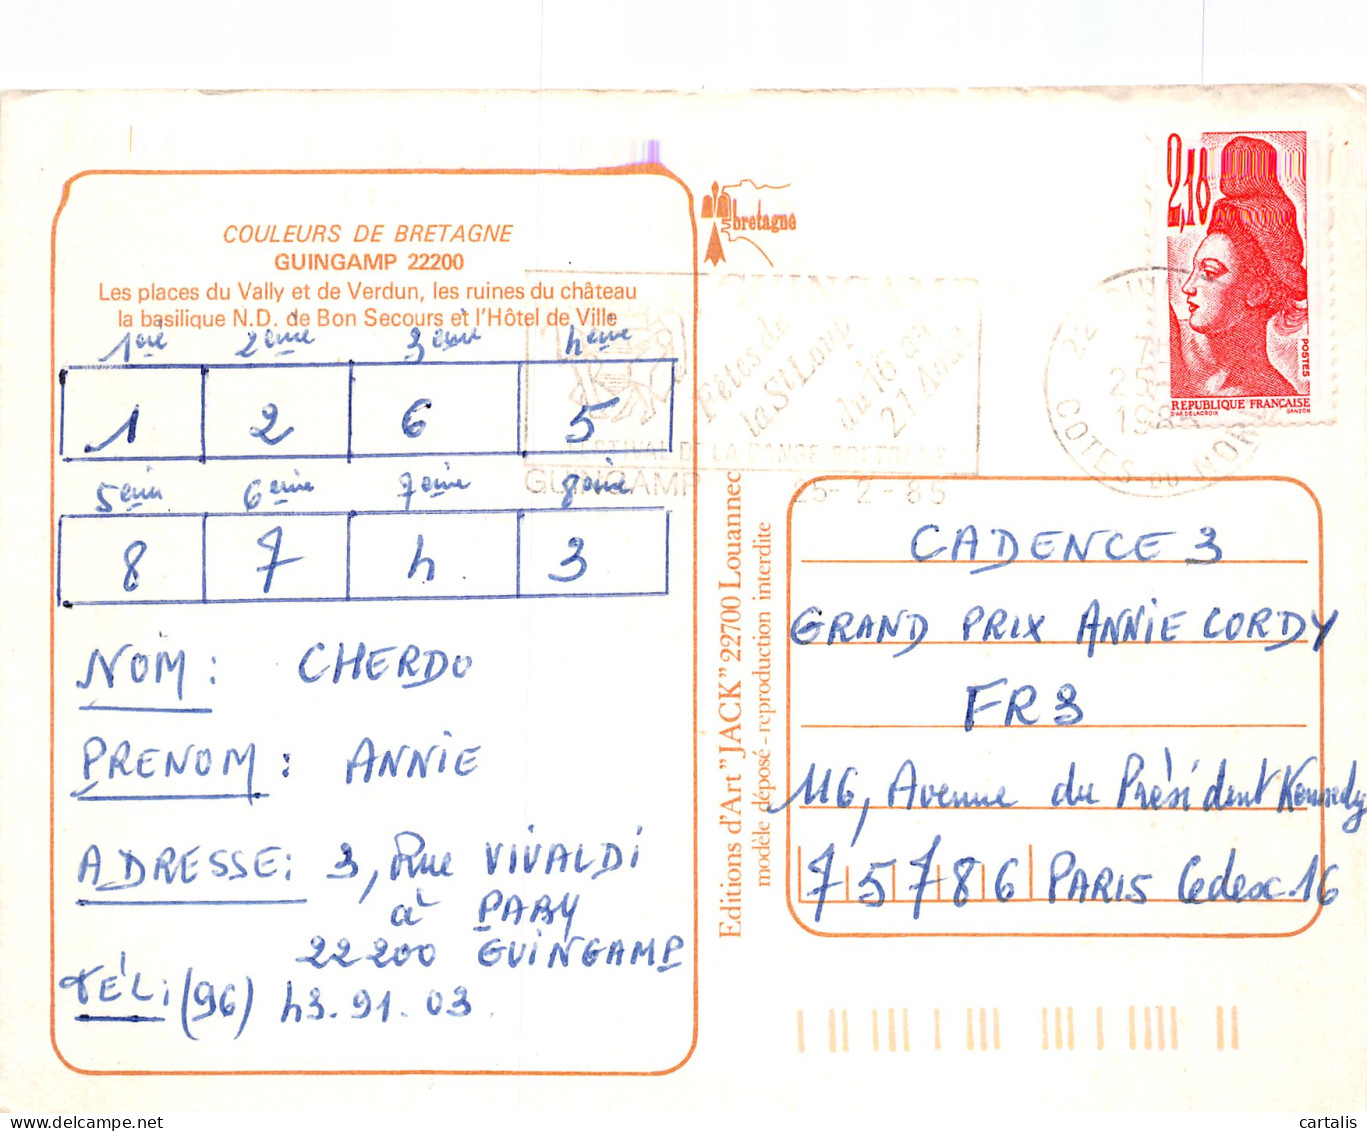 COULEURS DE BRETAGNE
GUINGAMP 22200
Les places du Vally et de Verdun, les ruines du château
la basilique N.D. de Bon Secours et l'Hôtel de Ville
1ère 2ème 3ème 4ème
1 2 6 5
5ème 6ème 7ème 8ème
8 7 4 3
NOM : CHERDO
PRENOM : ANNIE
ADRESSE : 3, Rue VIVALDI
à PABY
22200 GUINGAMP
TÉL : (96) 43.91.03.
bretagne
Editions d'Art "JACK" 22700 Louannec
modèle déposé - reproduction interdite
GUINGAMP
Fêtes de
la St Loup
du 16 au
21 Août
FESTIVAL DE LA DANSE BRETONNE
GUINGAMP 25-2-85
22
COTES DU NORD
2,10
POSTES
REPUBLIQUE FRANÇAISE
D'AP. DELACROIX GANDON
CADENCE 3
GRAND PRIX ANNIE CORDY
FR3
116, Avenue du Président Kennedy
75786 PARIS Cedex 16
cartalis